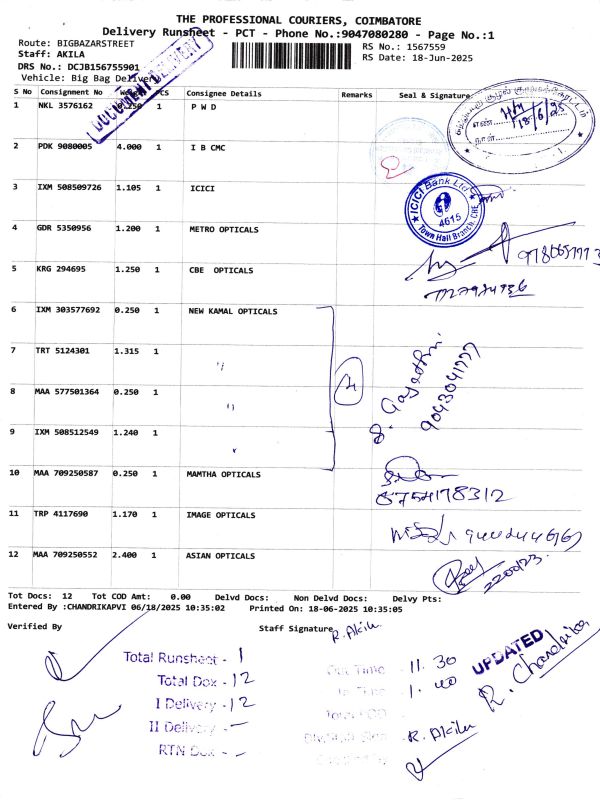 THE PROFESSIONAL COURIERS, COIMBATORE
Delivery Runsheet - PCT - Phone No.:9047080280 - Page No.:1
Route: BIGBAZARSTREET
Staff: AKILA
DRS No.: DCJB156755901
Vehicle: Big Bag Delivery
RS No.: 1567559
RS Date: 18-Jun-2025
DOCUMENT DELIVERY
S No Consignment No Weight PCS Consignee Details Remarks Seal & Signature
1 NKL 3576162 0.250 1 P W D
எண்.
நாள். 18/6/25
2 PDK 9080005 4.000 1 I B CMC
3 IXM 508509726 1.105 1 ICICI
ICICI Bank Ltd
4615
Town Hall Branch, CBE
4 GDR 5350956 1.200 1 METRO OPTICALS
5 KRG 294695 1.250 1 CBE OPTICALS
6 IXM 303577692 0.250 1 NEW KAMAL OPTICALS
7 TRT 5124301 1.315 1 "
8 MAA 577501364 0.250 1 "
9 IXM 508512549 1.240 1 "
S. Gayathri
9043041777
10 MAA 709250587 0.250 1 MAMTHA OPTICALS
8754178312
11 TRP 4117690 1.170 1 IMAGE OPTICALS
12 MAA 709250552 2.400 1 ASIAN OPTICALS
Tot Docs: 12 Tot COD Amt: 0.00 Delvd Docs: Non Delvd Docs: Delvy Pts:
Entered By :CHANDRIKAPVI 06/18/2025 10:35:02 Printed On: 18-06-2025 10:35:05
Verified By Staff Signature R. Akila
Total Runsheet - 1
Total Dox - 12
I Delivery - 12
II Delivery - -
RTN Dox - -
Out Time - 11.30
In Time - 1.00
R. Akila
UPDATED
R. Chandrika